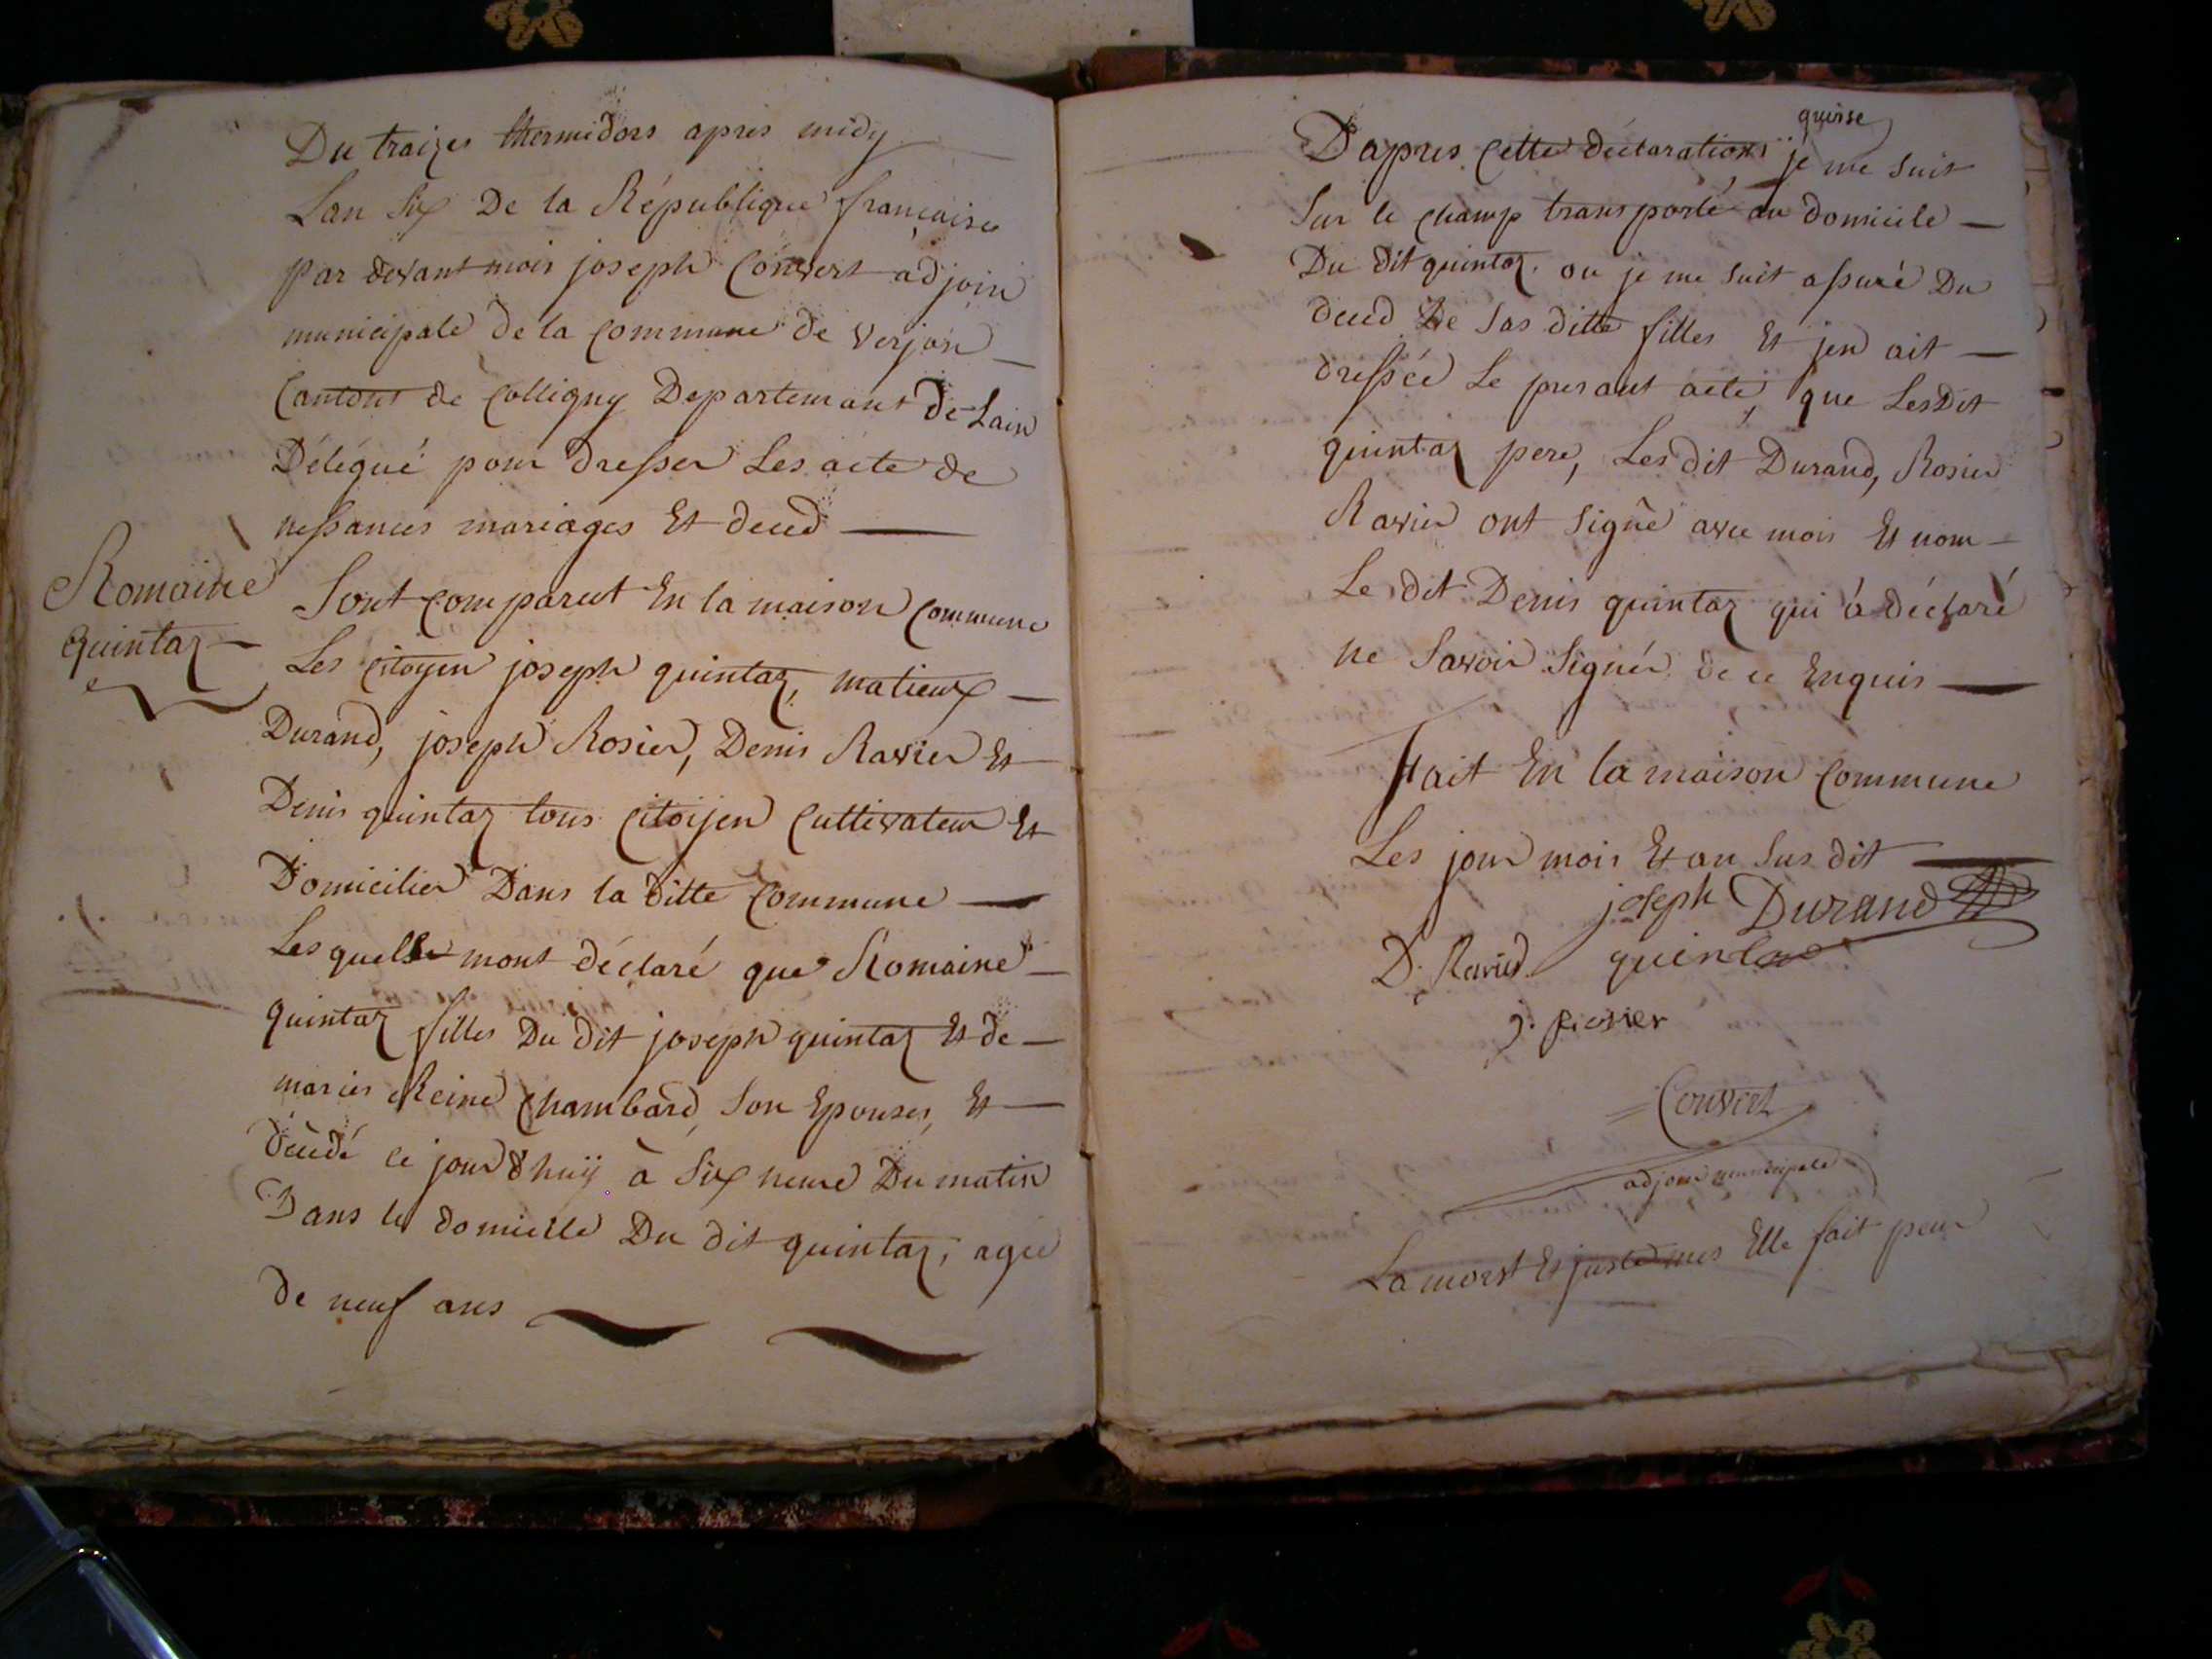 Du traizes thermidors apres midy
Lan Six De la République françaises
par devant mois joseph Convert adjoin
municipale de la Commune de verjon
Cantons de Colligny Departemant de Lain
Délégué pour dresser Les acte de
nessances mariages Et deced
Romaine
quintaz
Sont comparut En la maison Commune
Les Citoyen joseph quintaz, matieux
Durand, joseph Rosier, Denis Ravier Et
Denis quintaz tous Citoijen Cultivateur Et
Domicilier Dans la ditte Commune
Les quelle mont déclaré que Romaine
quintaz filles Du dit joseph quintaz Et de
maries Reine Chambard Son Epouses, Et
décédé ce jourd'huÿ à Six heure Du matin
Dans le domicille Du dit quintaz, agée
de neuf ans
quinse
Dapres Cette déclarations je me suit
Sur le champ transporté au domicile
Du dit quintaz. ou je me suit assuré Du
deced De Sas ditte filles Et jen ait
dressée Le presant acte, que Lesdit
quintaz pere, Les dit Durand, Rosier
Ravier ont signé avec mois Et nom
Le dit Denis quintaz qui à déclaré
ne Savoir Signér de ce Enquis
ffait En la maison Commune
Les jour mois Et an Sus dit
joseph Durand
D. Ravier quinta
j. Rosier
Convert
adjoin municipale
La morst Et juste mes Elle fait peur